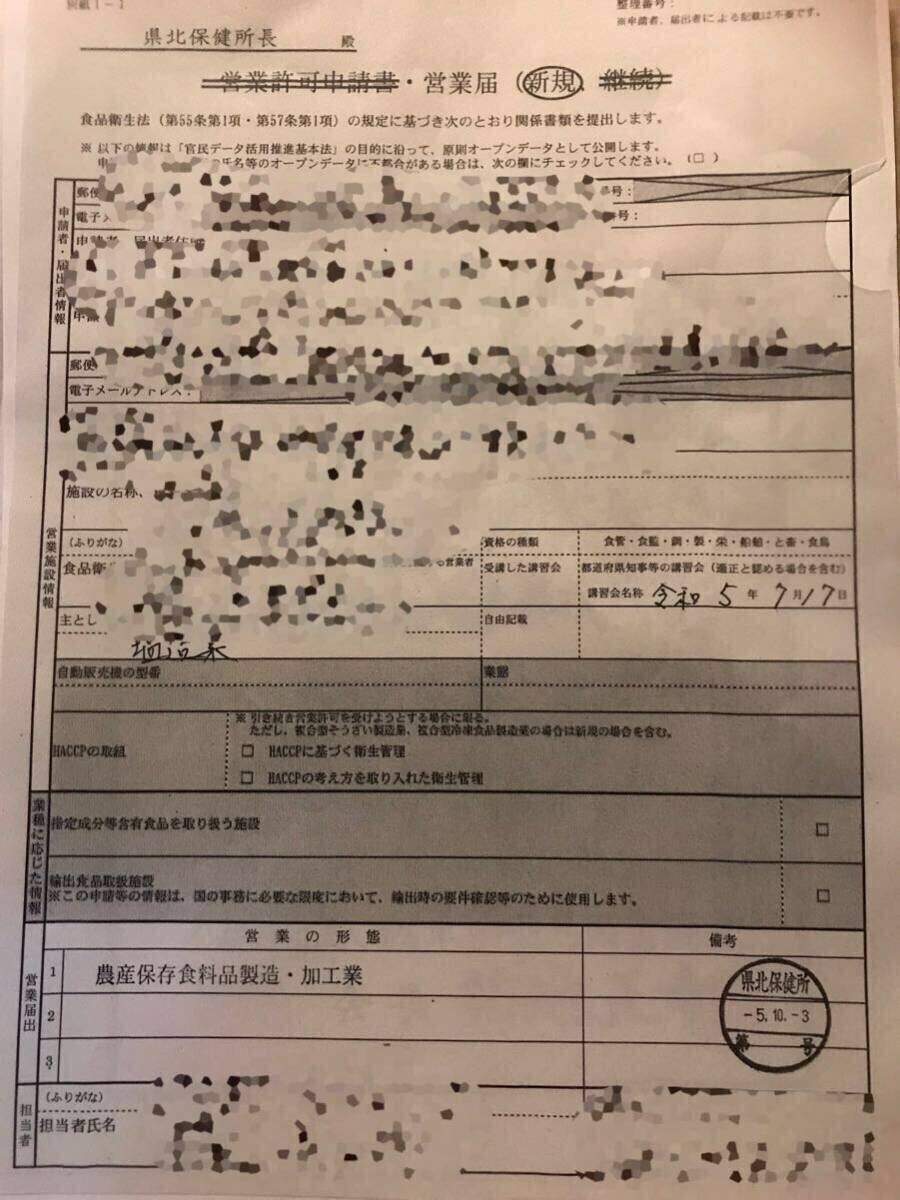 別紙1-1
整理番号:
※申請者、届出者による記載は不要です。
県北保健所長 殿
営業許可申請書・営業届(新規、継続)
食品衛生法(第55条第1項・第57条第1項)の規定に基づき次のとおり関係書類を提出します。
※ 以下の情報は「官民データ活用推進基本法」の目的に沿って、原則オープンデータとして公開します。
申 の氏名等のオープンデータに不都合がある場合は、次の欄にチェックしてください。(□)
申請者・届出者情報
郵便 番号:
電子メ 番号:
申請者・届出者住所
申請
営業施設情報
郵便
電子メールアドレス:
施設の名称、
(ふりがな)
食品衛
資格の種類
食管・食監・調・製・栄・船舶・と畜・食鳥
受講した講習会
都道府県知事等の講習会(適正と認める場合を含む)
講習会名称 令和 5 年 7 月 17 日
主とし
自由記載
自動販売機の型番
業態
HACCPの取組
※ 引き続き営業許可を受けようとする場合に限る。
ただし、複合型そうざい製造業、複合型冷凍食品製造業の場合は新規の場合を含む。
□ HACCPに基づく衛生管理
□ HACCPの考え方を取り入れた衛生管理
業種に応じた情報
指定成分等含有食品を取り扱う施設 □
輸出食品取扱施設
※この申請等の情報は、国の事務に必要な限度において、輸出時の要件確認等のために使用します。 □
営業届出
営業の形態 備考
1 農産保存食料品製造・加工業
2
3
県北保健所
-5.10.-3
第 号
担当者
(ふりがな)
担当者氏名